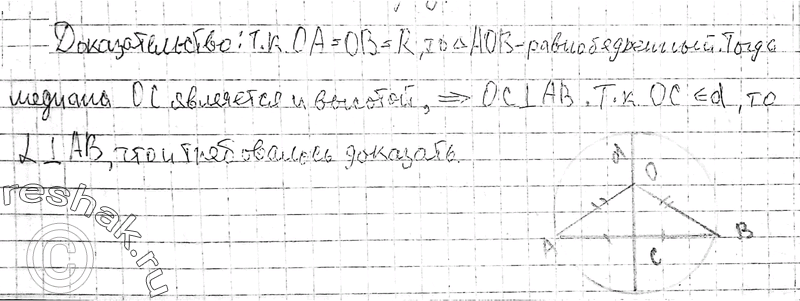 Доказательство: Т.к. OA=OB=R, то △AOB-равнобедренный. Тогда
медиана OC является и высотой, ⇒ OC⊥AB. Т.к. OC∈d, то
d⊥AB, что и требовалось доказать.
d
O
A
B
C
reshak.ru
©